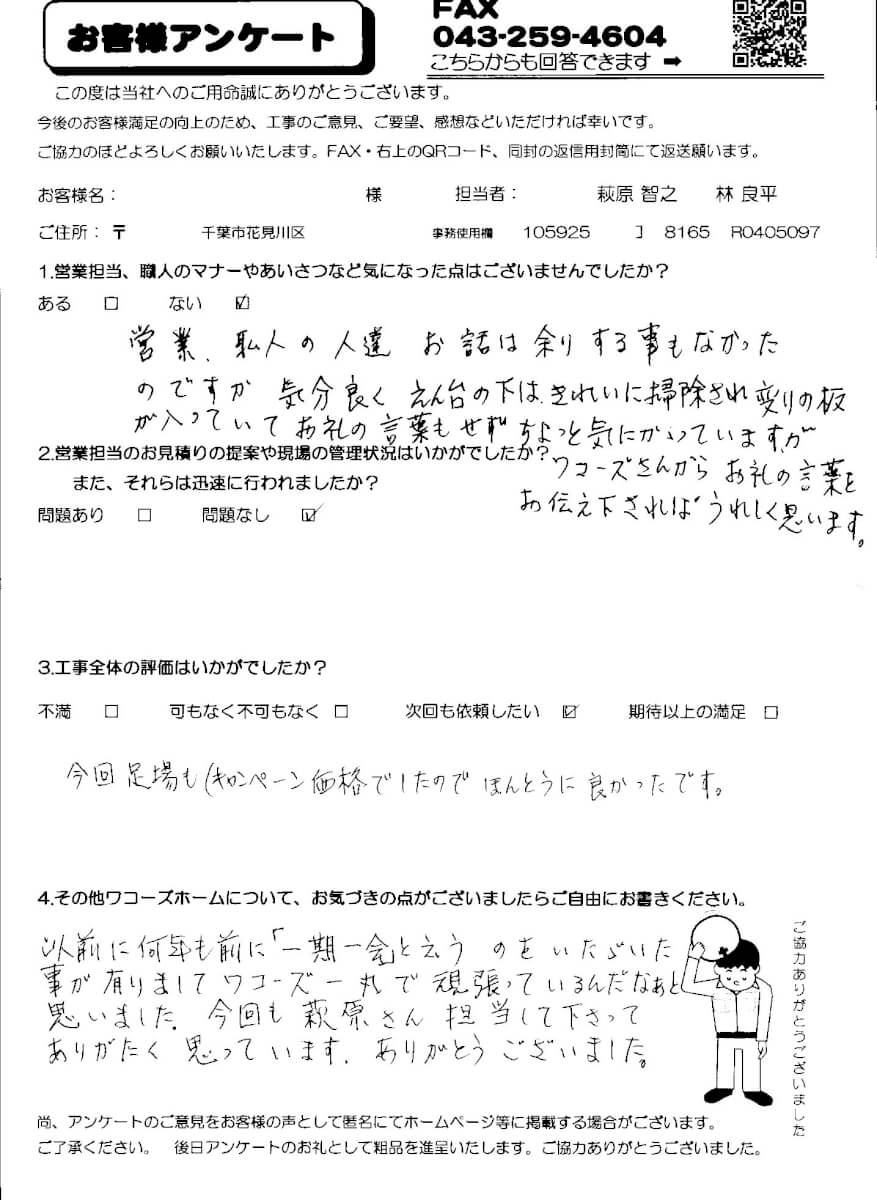 お客様アンケート
FAX
043-259-4604
こちらからも回答できます ➡
この度は当社へのご用命誠にありがとうございます。
今後のお客様満足の向上のため、工事のご意見、ご要望、感想などいただければ幸いです。
ご協力のほどよろしくお願いいたします。FAX・右上のQRコード、同封の返信用封筒にて返送願います。
お客様名： 様 担当者： 萩原 智之 林 良平
ご住所：〒 千葉市花見川区 事務使用欄 105925 ] 8165 R0405097
1.営業担当、職人のマナーやあいさつなど気になった点はございませんでしたか？
ある □ ない ☑
営業、職人の人達 お話は余りする事もなかった
のですが 気分良く えん台の下は、きれいに掃除され 変りの板
が入っていて お礼の言葉もせず ちょっと気にかかっていますが、
2.営業担当のお見積りの提案や現場の管理状況はいかがでしたか？
ワコーズさんから お礼の言葉を
また、それらは迅速に行われましたか？
お伝え下されば うれしく思います。
問題あり □ 問題なし ☑
3.工事全体の評価はいかがでしたか？
不満 □ 可もなく不可もなく □ 次回も依頼したい ☑ 期待以上の満足 □
今回足場も(キャンペーン価格でしたので ほんとうに 良かったです。
4.その他ワコーズホームについて、お気づきの点がございましたらご自由にお書きください。
以前に何年も前に「一期一会」と云う のをいただいた
事が有りまして ワコーズ一丸で 頑張っているんだなぁと
思いました。今回も 萩原さん 担当して下さって
ありがたく 思っています。ありがとうございました。
ご協力ありがとうございました
尚、アンケートのご意見をお客様の声として匿名にてホームページ等に掲載する場合がございます。
ご了承ください。 後日アンケートのお礼として粗品を進呈いたします。ご協力ありがとうございました。